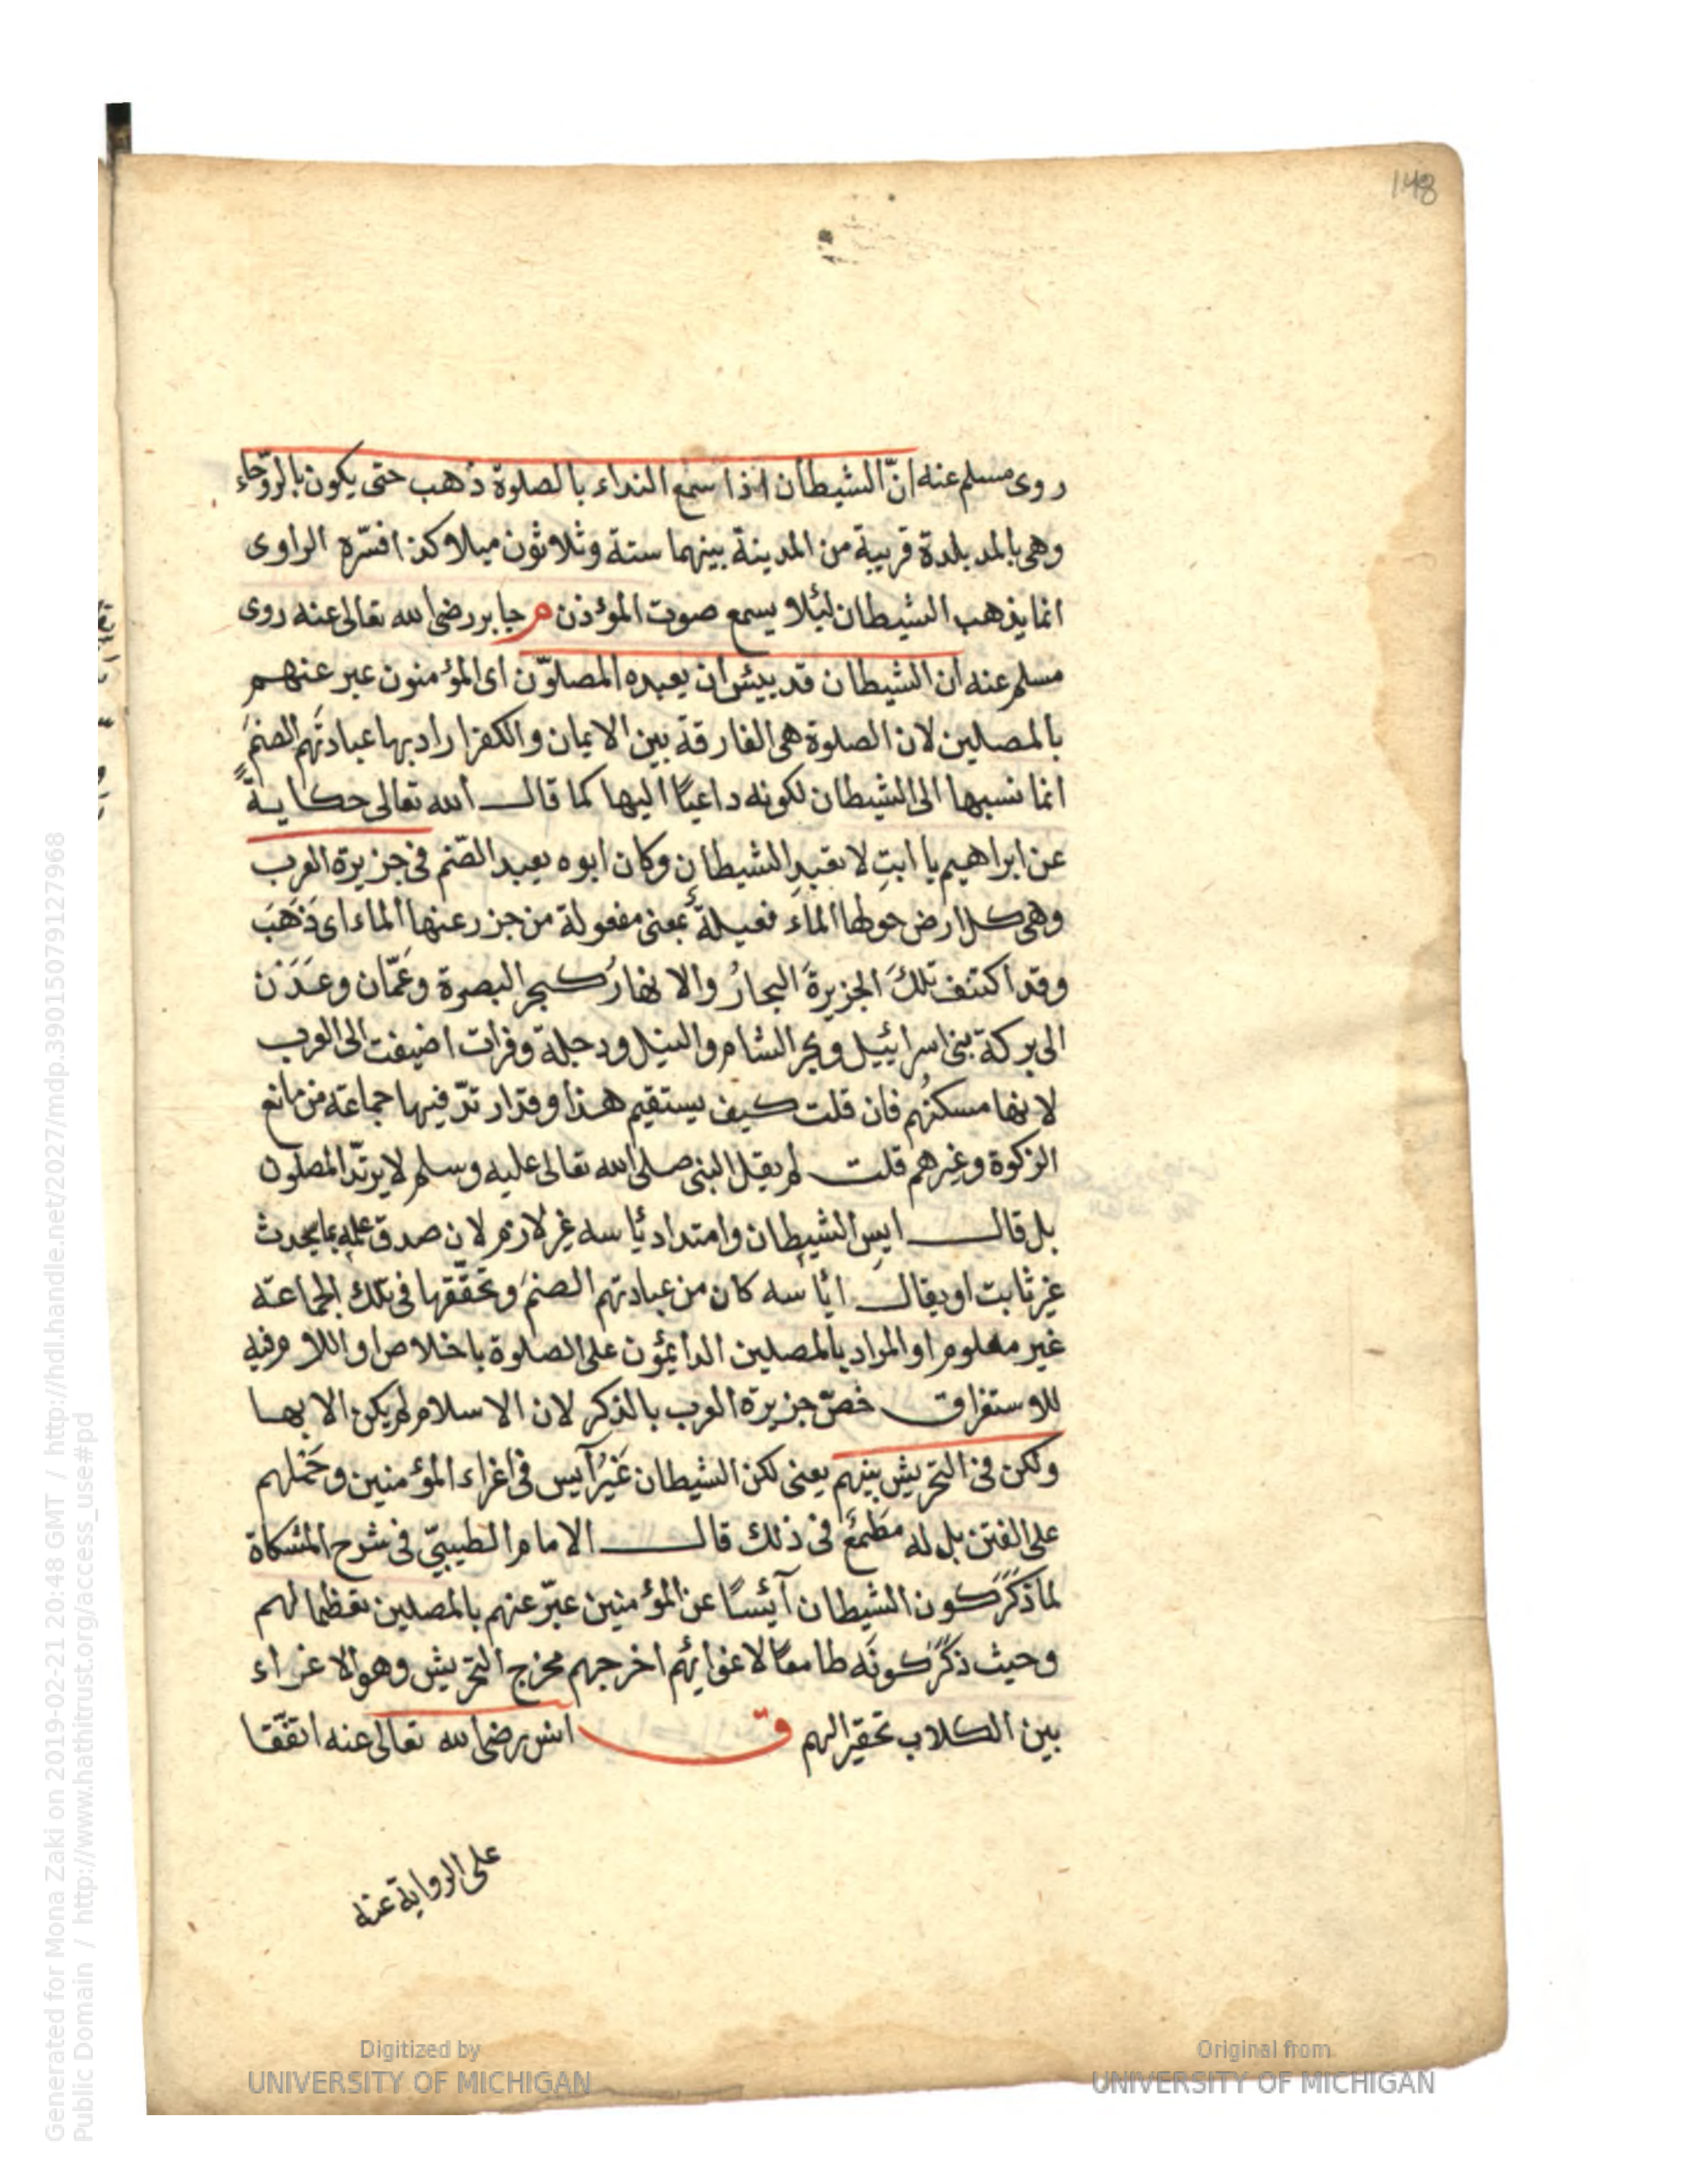 148
روى مسلم عنه انّ الشيطان اذا سمع النداء بالصلوة ذهب حتى يكون بالروّحاء
وهى بالمد بلدة قريبة من المدينة بينهما ستة وثلاثون ميلا وكذا فسّره الراوى
انما يذهب الشيطان لئلا يسمع صوت المؤذن م جابر رضى الله تعالى عنه روى
مسلم عنه ان الشيطان قد يئس ان يعبده المصلوّن اى المؤمنون عبر عنهم
بالمصلين لان الصلوة هى الفارقة بين الايمان والكفر اراد بها عبادتَهم الصنمَ
انما نسبها الى الشيطان لكونه داعيًا اليها كما قال الله تعالى حكايةً
عن ابراهيم يا ابتِ لا تعبدِ الشيطان وكان ابوه يعبد الصّنم فى جزيرة العرب
وهى كل ارض حولها الماء فعيلة بمعنى مفعولة من جزر عنها الماء اى ذَهَبَ
وقد اكتنف تلكَ الجزيرةَ البحارُ والانهارُ كبحر البصرة وعَمّان وعَدَن
الى بركة بنى اسرائيل وبحر الشام والنيل ودجلة وفرات اضيفت الى العرب
لانها مسكنُهم فان قلت كيف يستقيم هذا وقد ارتدّ فيها جماعة من مانع
الزكوة وغيرهم قلت لم يقل النبى صلى الله تعالى عليه وسلم لا يرتدّ المصلون
بل قال ايس الشيطان وامتداد ئاسه غير لازم لان صدق علمه بما يحدث
غير ثابت او يقال ائاسه كان من عبادتهم الصنمَ وتحقّقها فى تلك الجماعة
غير معلوم او المراد بالمصلين الدائمون على الصلوة باخلاص او اللام فيه
للاستغراق خصّ جزيرة العرب بالذكر لان الاسلام لم يكن الا بها
ولكن فى التحريش بينهم يعنى لكن الشيطان غيرُ آيس فى اغراء المؤمنين وحَمْلهم
على الفتن بل له مَطْمَعٌ فى ذلك قال الامام الطيبىّ فى شرح المشكاة
لما ذَكَرَ كون الشيطان آئسًا عن المؤمنين عبّر عنهم بالمصلين تعظيما لهم
وحيث ذَكَرَ كونَه طامعًا لاغوائهم اخرجهم مخرج التحريش وهو الاغراء
بين الكلاب تحقيرا لهم ق انس رضى الله تعالى عنه اتفّقا
على الرواية عنه
Generated for Mona Zaki on 2019-02-21 20:48 GMT / http://hdl.handle.net/2027/mdp.39015079127968
Public Domain / http://www.hathitrust.org/access_use#pd
Digitized by
UNIVERSITY OF MICHIGAN
Original from
UNIVERSITY OF MICHIGAN